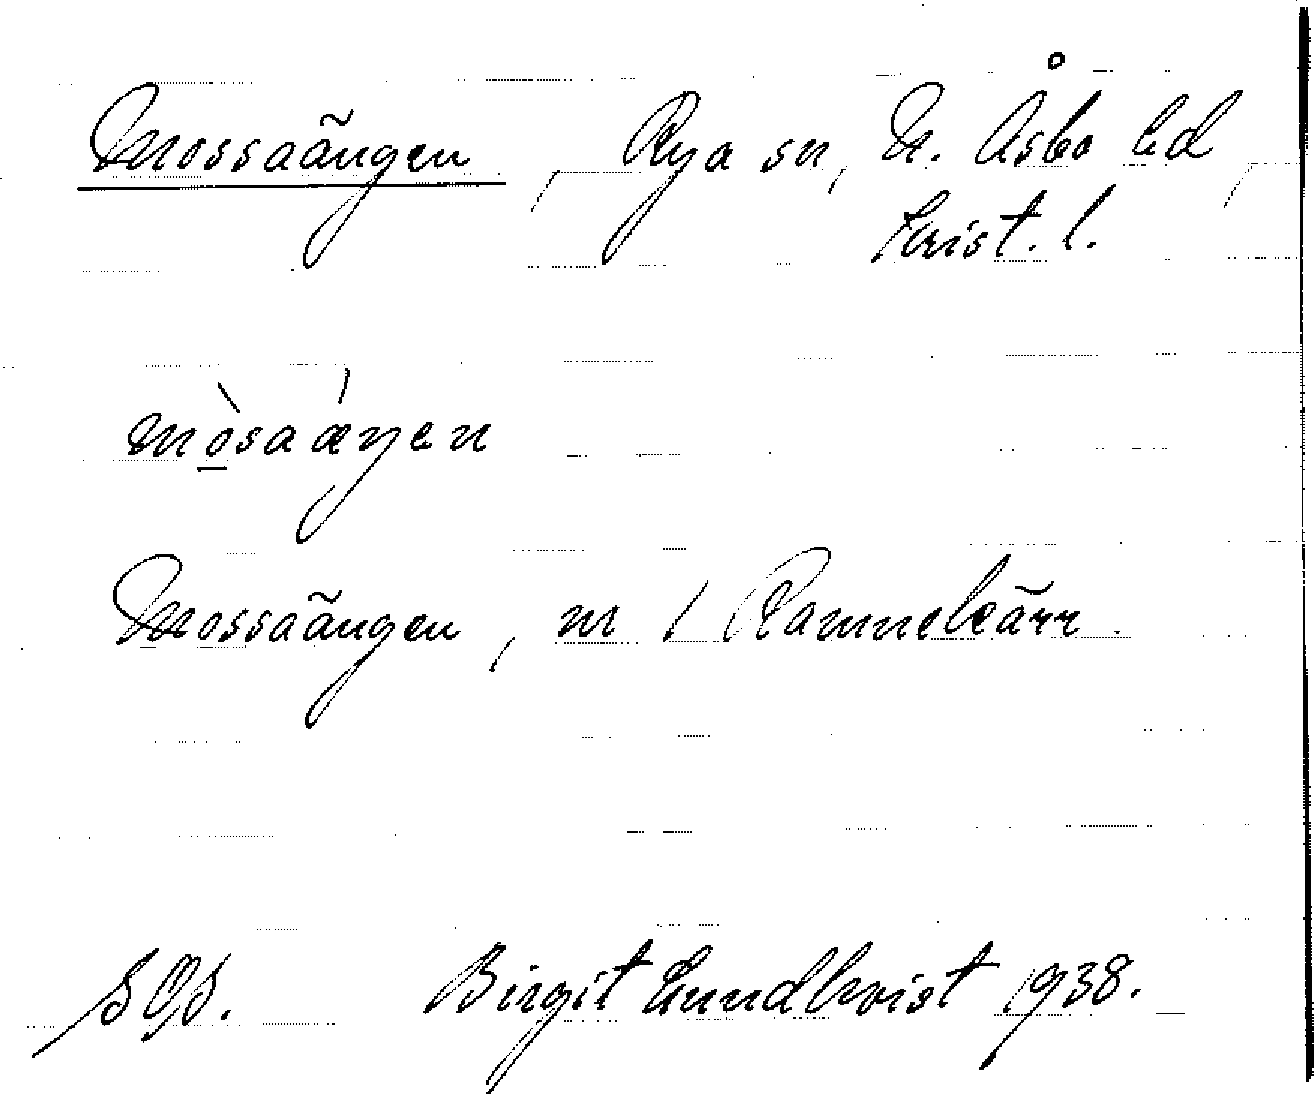 Mossaängen, Rya sn, N. Åsbo hd,
Krist. l.
mò̲saǽŋen
Mossaängen, nr 1 Ramnekärr.
SOS. Birgit Lundkvist 1938.